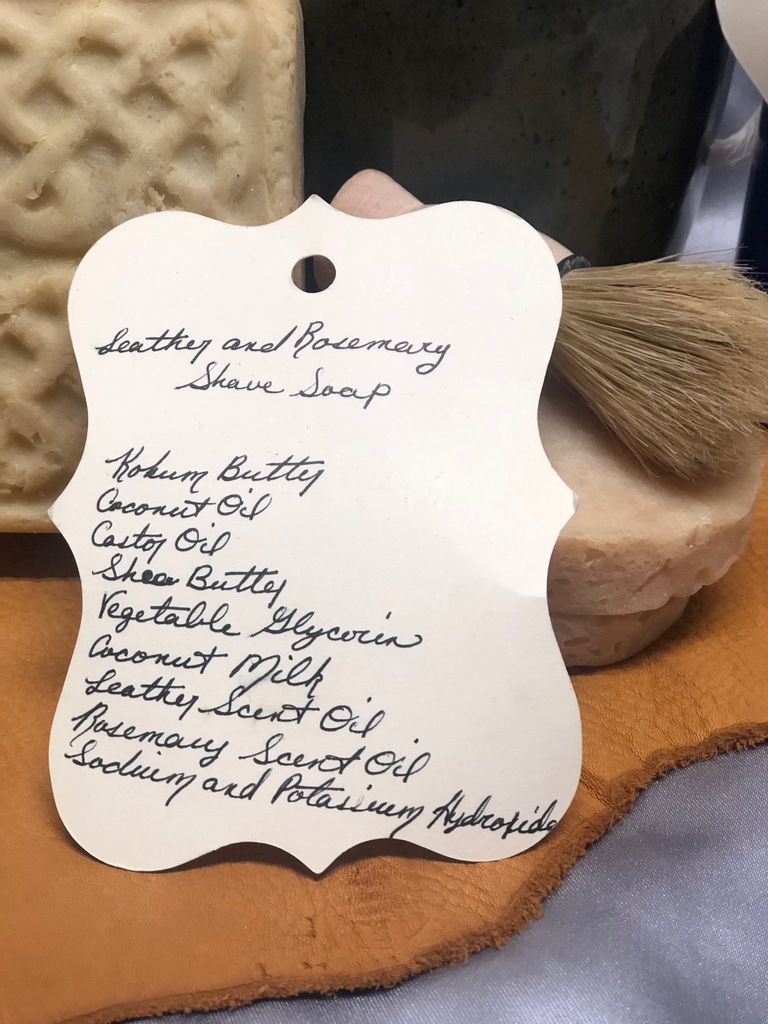 Leather and Rosemary
Shave Soap
Kokum Butter
Coconut Oil
Castor Oil
Shea Butter
Vegetable Glycerin
Coconut Milk
Leather Scent Oil
Rosemary Scent Oil
Sodium and Potassium Hydroxide